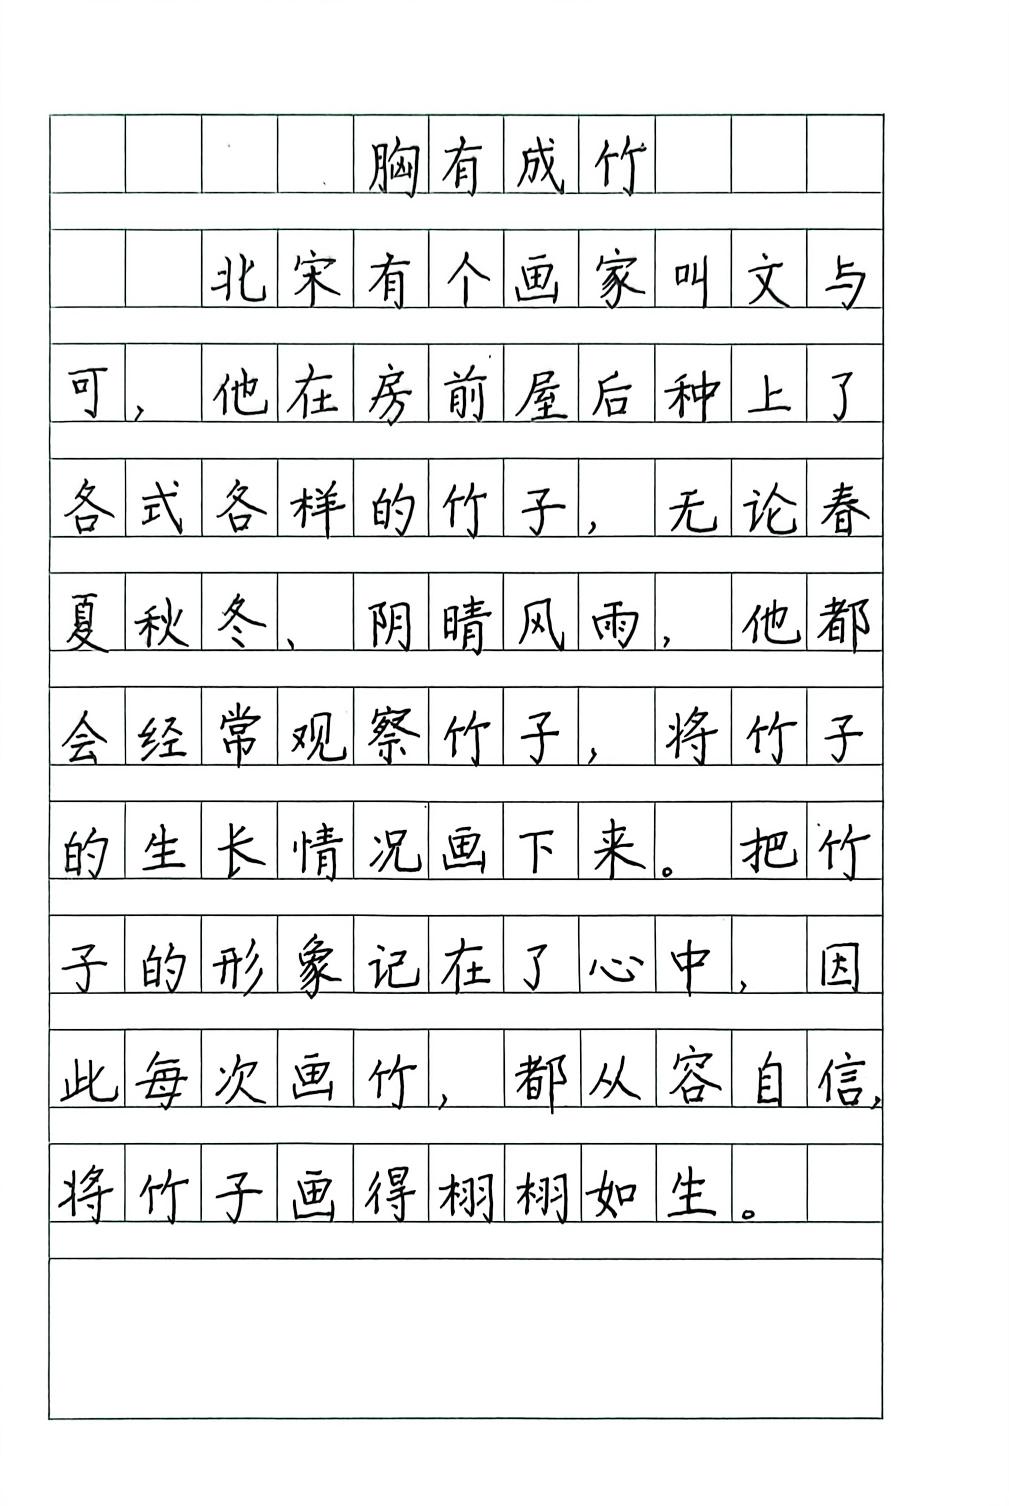 胸有成竹
北宋有个画家叫文与
可，他在房前屋后种上了
各式各样的竹子，无论春
夏秋冬、阴晴风雨，他都
会经常观察竹子，将竹子
的生长情况画下来。把竹
子的形象记在了心中，因
此每次画竹，都从容自信，
将竹子画得栩栩如生。